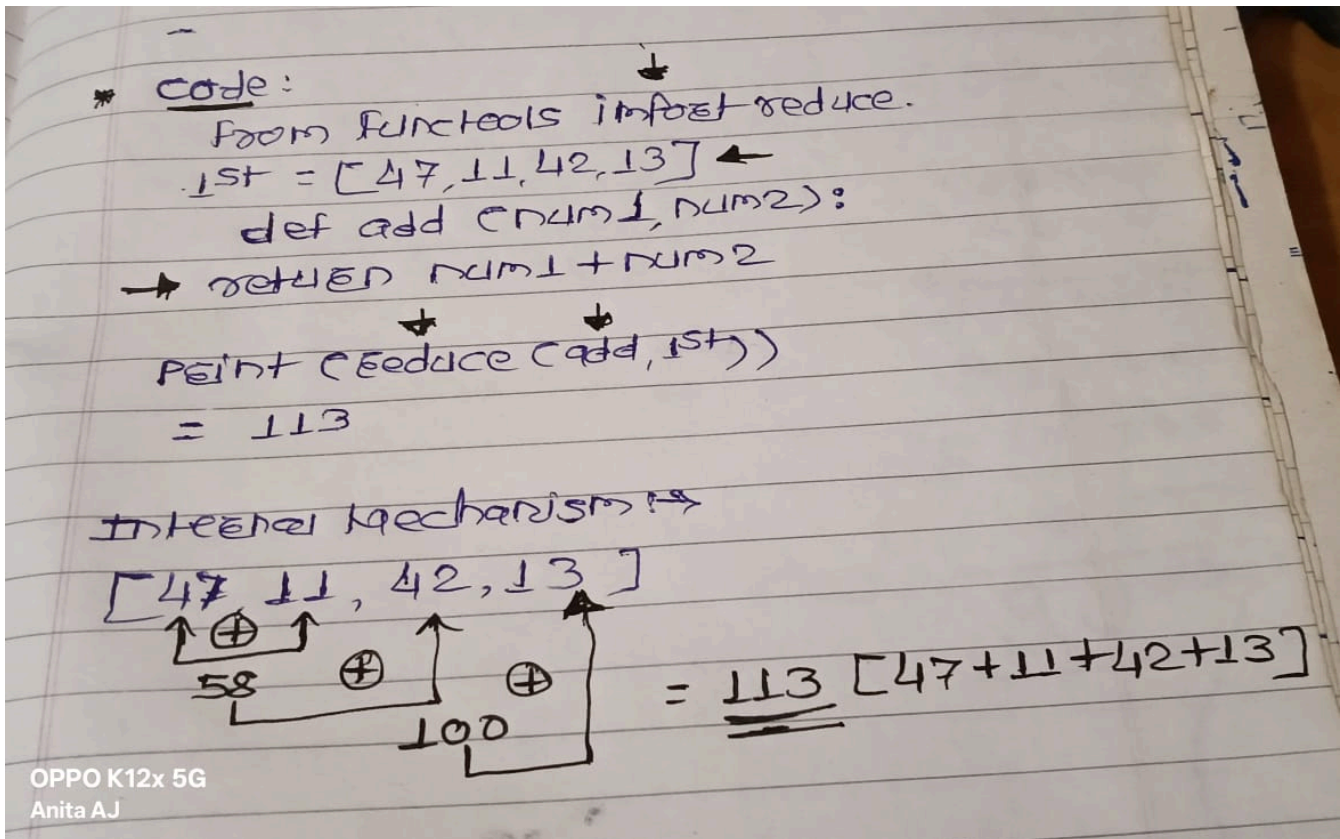 * code:
from functools import reduce.
lst = [47, 11, 42, 13] ←
def add (num1, num2):
→ return num1 + num2
print (reduce (add, lst))
= 113
Internal Mechanism →
[47, 11, 42, 13]
⊕
58 ⊕ ⊕
= 113 [47+11+42+13]
100
OPPO K12x 5G
Anita AJ